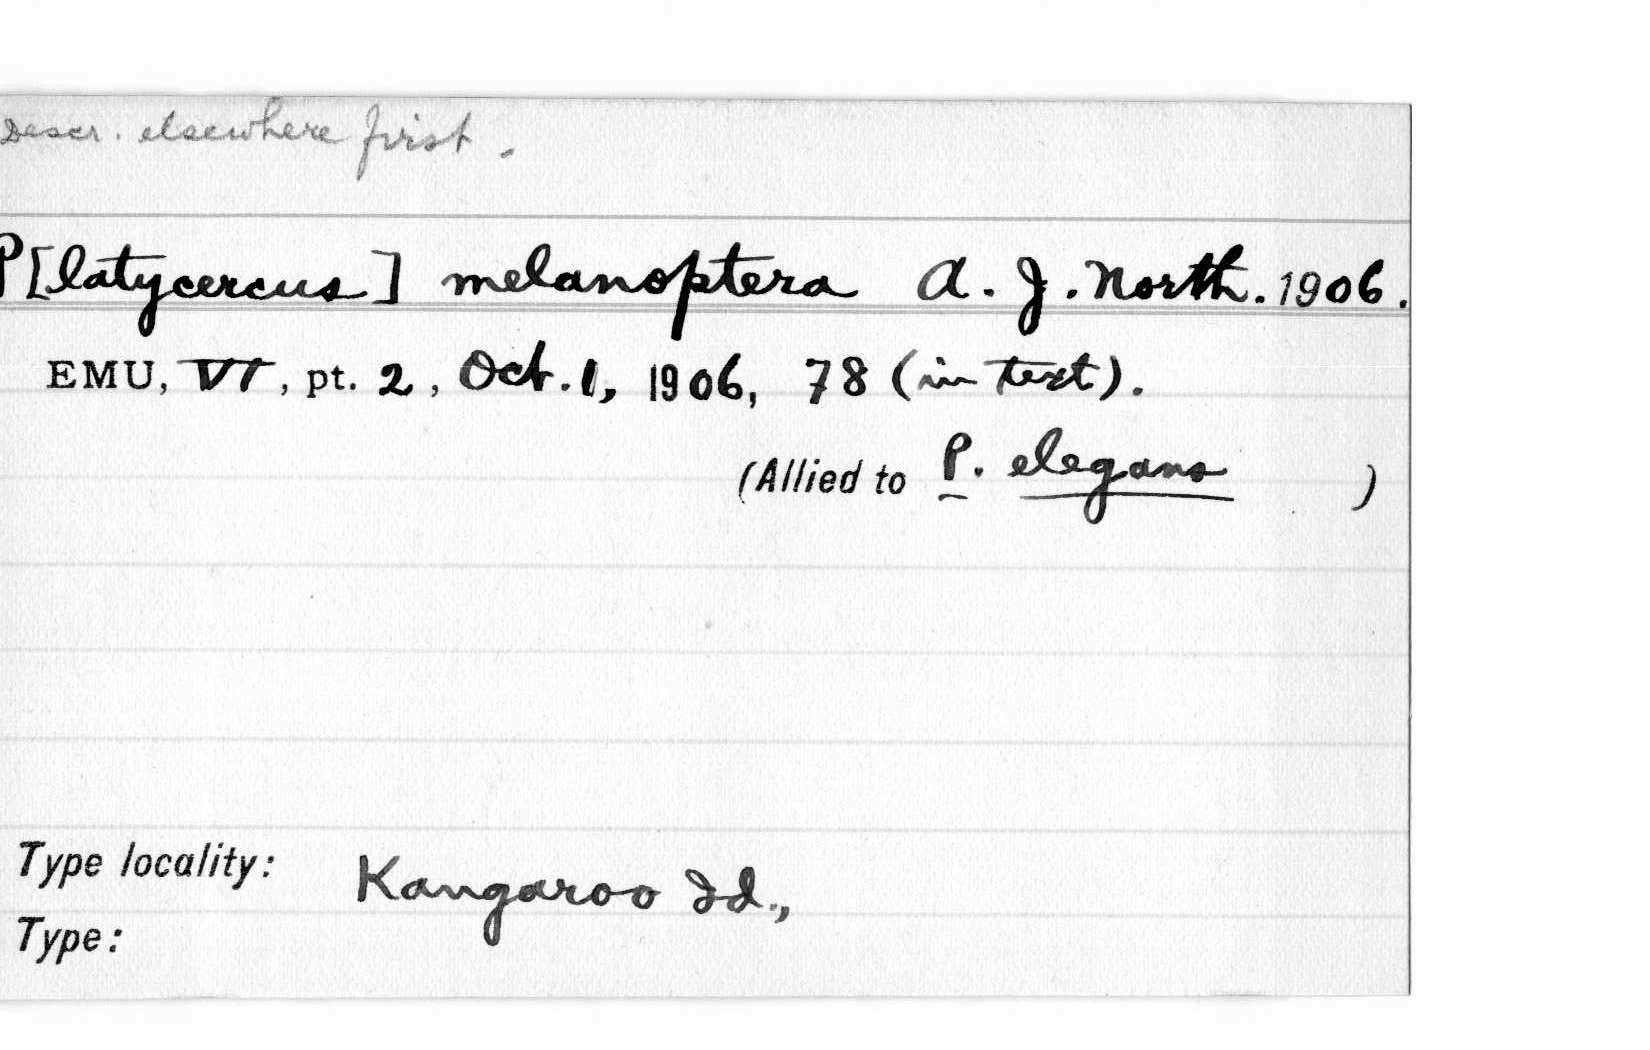 Descr. elsewhere first.
P[latycercus] melanoptera A. J. North. 1906.
EMU, VI, pt. 2, Oct. 1, 1906, 78 (in text).
(Allied to P. elegans )
Type locality: Kangaroo Id.,
Type: